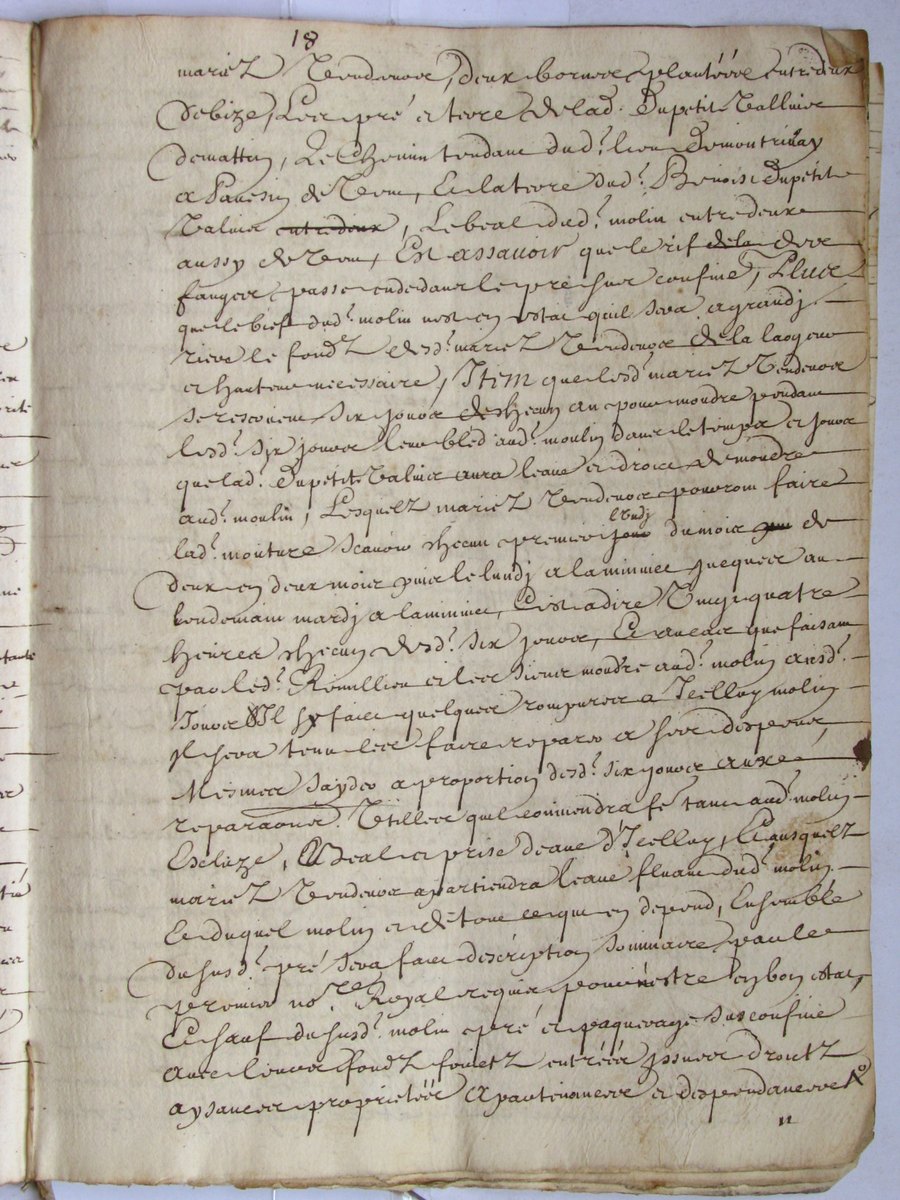 18
mariez Vendeurs, deux bornes plantéés entredeux
debize, Les pré et terre de lad. Dupetit Vallier
demattin, Le Chemin tendant dud. lieu de
a de Vent, Et la terre dud. Benoist Dupetit
Valier entredeux, Le beal dud. molin entredeux
aussy de Vent, Est assauoir que le rif dela des
fanges passe endedans le pré sus confiné, Plus
que le bief dud. molin est en estat quil sera agrandj
riere le fondz desd. mariez Vendeurs de la largeur
et hauteur necessaire, Item que lesd. mariez Vendeurs
se reseruent six jours de checun an pour moudre pendant
lesd. six jours leur bléd aud. moulin dans le temps et jours
que lad. Dupetit Valier aura leaue et droict de moudre
aud. moulin, Lesquelz mariez Vendeurs pourront faire
lad. mouture scauoir checun premier jour lundj du mois de
deux en deux mois puis le lundj a laminuict jusques au
lendemain mardj a laminuict, Cest adire Vingt quatre
heures checun desd. six jours, Et au cas que faisant
par led. Remillieu et les siens moudre aud. molin ausd.
Jours Il sy face quelques rompures a Jcelluy molin
Jl sera tenu les faire reparer a ses despens
Mesmes d'ayder a proportion desd. six jours aux
reparaons Vtilles quil conuiendra fe tant aud. molin
Escluze, Beal et prise deaue d'Jcelluy, Et ausquelz
mariez Vendeurs apartiendra leaue fluant dud. molin
Et duquel molin et de tout ce qui en depend, Ensemble
du susd. pré sera faict déscription sommaire par le
premier nore Royal requis pour nestre en bon estat,
Et sauf du susd. molin pré et paquerage sus confiné
auec leurs fondz fruictz entréés jssues droictz
aysances propriétéés apartenances et despendances